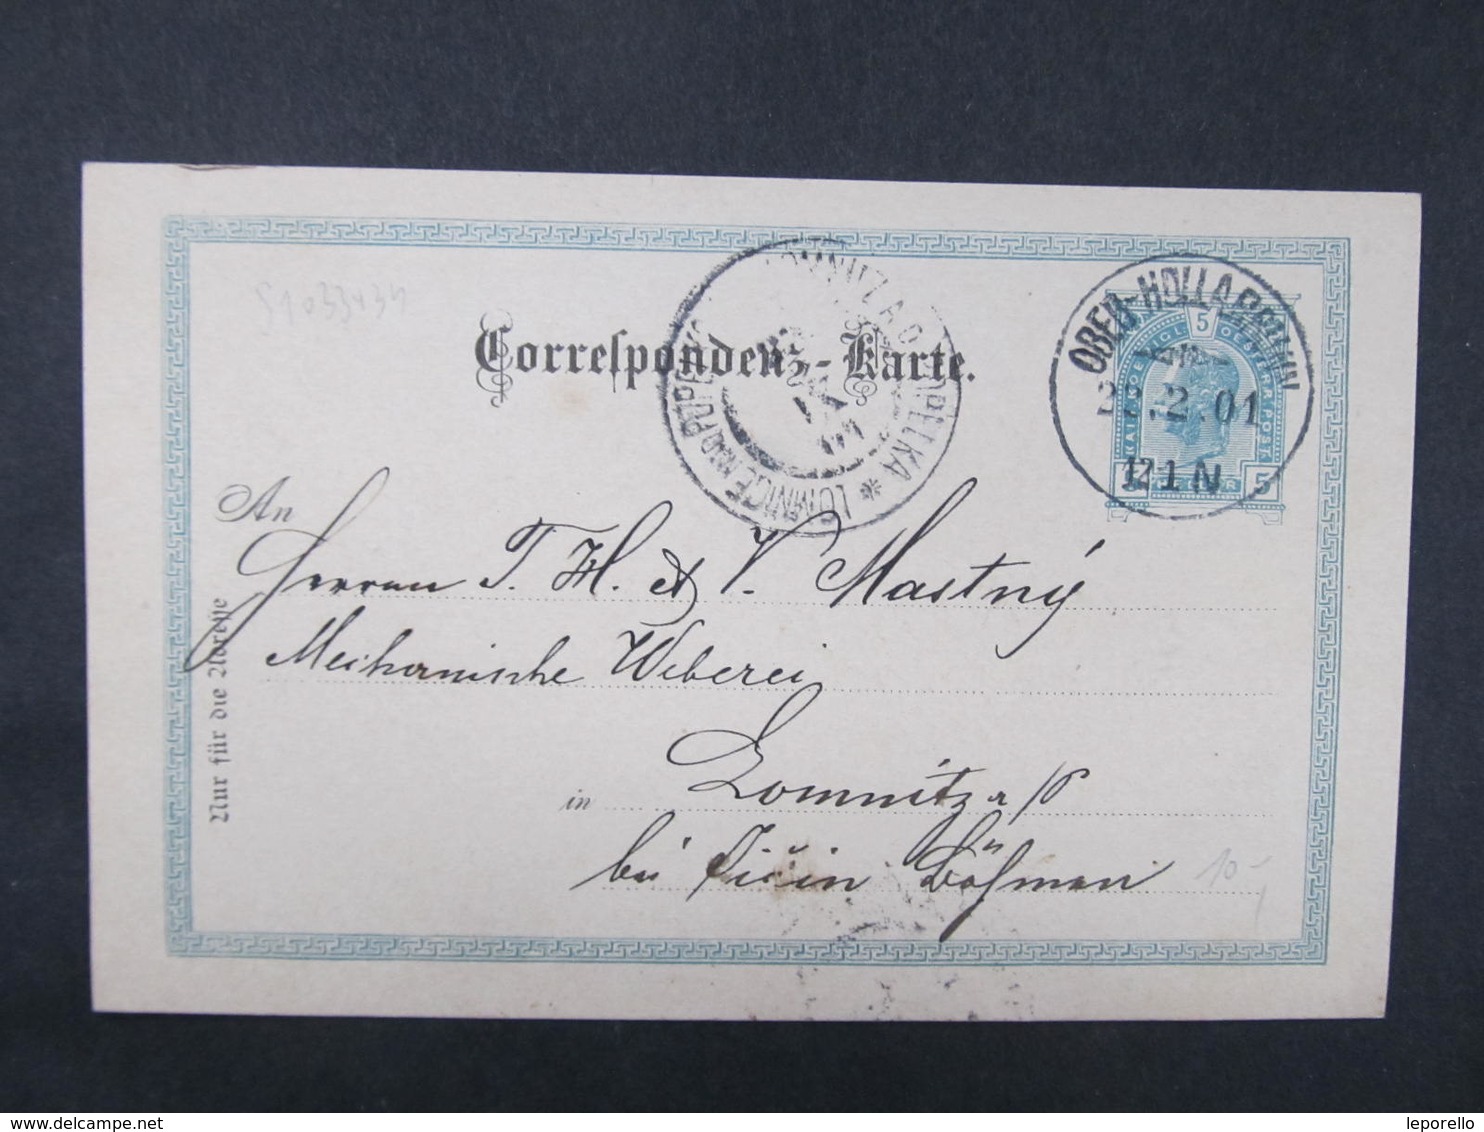 S1033434
Correspondenz-Karte.
LOMNITZ A.D. POPELKA * LOMNICE NAD POPELKOU
OBER-HOLLABRUNN
22.2.01
12 1 N
5
5 5
An
Herren T. H. & V. Mastný
Mechanische Weberei
in Lomnitz a/P
bei Jičin Böhmen
10-
Nur für die Adresse
delcampe.net
leporello